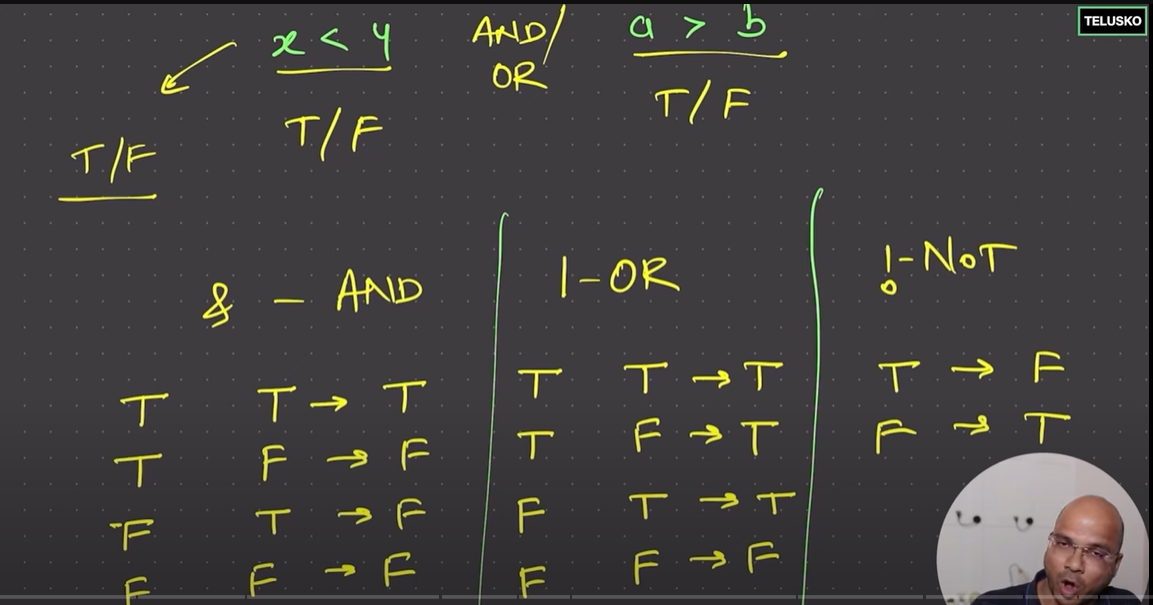 TELUSKO
x < y AND/OR a > b
T/F T/F
T/F
& - AND
T T → T
T F → F
F T → F
F F → F
|-OR
T T → T
T F → T
F T → T
F F → F
!-NOT
T → F
F → T